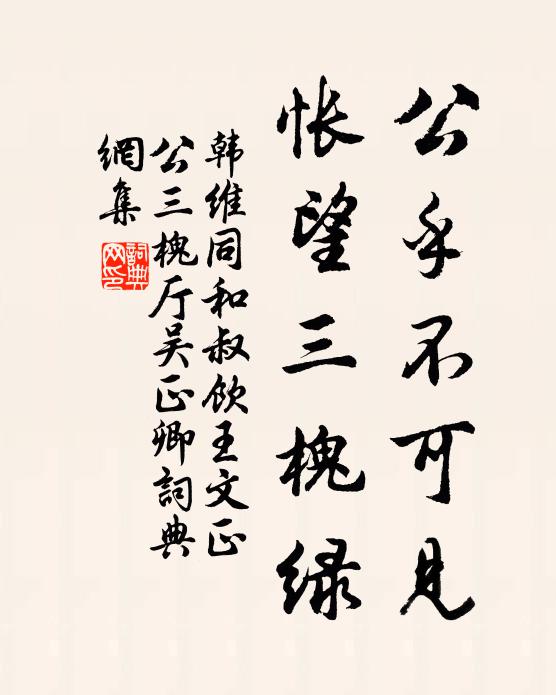 公乎不可见
怅望三槐绿
韩维同和叔饮王文正
公三槐厅吴正卿詞典
網集
詞典
网印